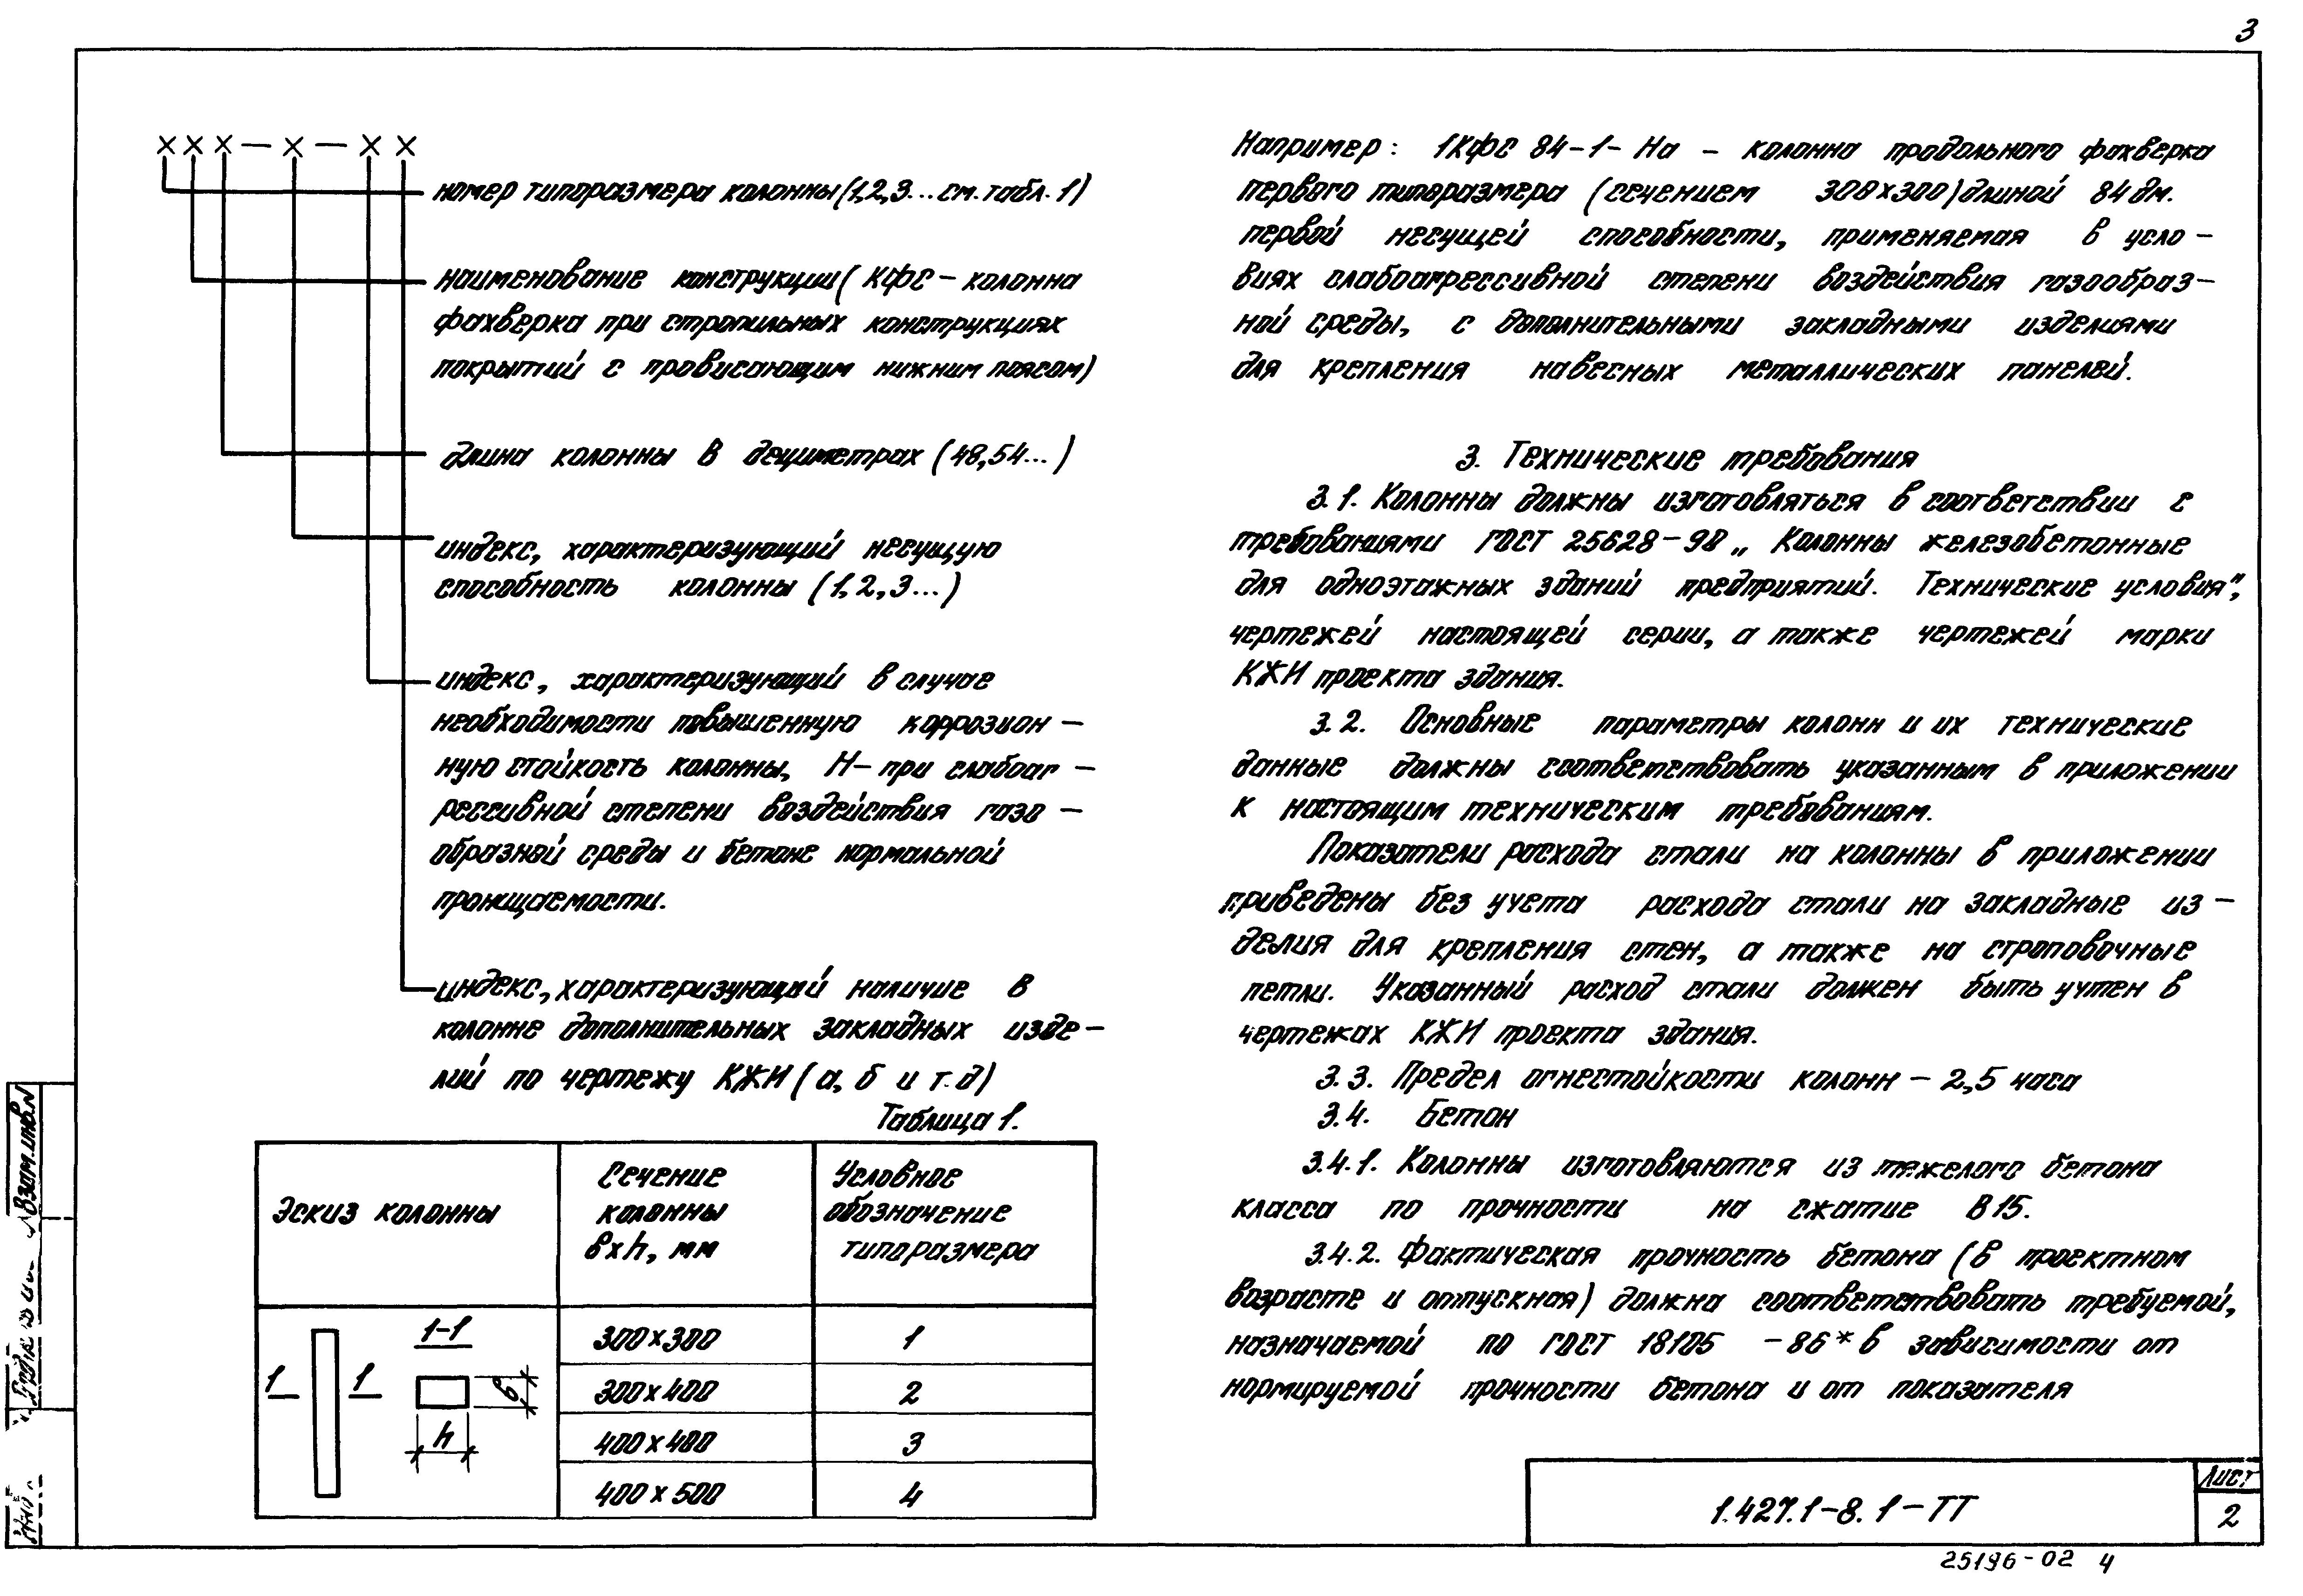 3
× × × — × — × ×
номер типоразмера колонны (1,2,3... см. табл. 1)
наименование конструкции ( КФС – колонна
фахверка при стропильных конструкциях
покрытий с провисающим нижним поясом)
длина колонны в дециметрах (48,54...)
индекс, характеризующий несущую
способность колонны (1,2,3...)
индекс, характеризующий в случае
необходимости повышенную коррозион –
ную стойкость колонны, Н– при слабоаг –
рессивной степени воздействия газо –
образной среды и бетоне нормальной
проницаемости.
индекс, характеризующий наличие в
колонне дополнительных закладных изде –
лий по чертежу КЖИ ( а, б и т. д)
Таблица 1.
Эскиз колонны
Сечение
колонны
в×h, мм
Условное
обозначение
типоразмера
1
1
1-1
в
h
300×300 1
300×400 2
400×400 3
400×500 4
Например: 1КФС 84-1- На – колонна продольного фахверка
первого типоразмера (сечением 300×300) длиной 84 дм.
первой несущей способности, применяемая в усло –
виях слабоагрессивной степени воздействия газообраз–
ной среды, с дополнительными закладными изделиями
для крепления навесных металлических панелей.
3. Технические требования
3.1. Колонны должны изготовляться в соответствии с
требованиями ГОСТ 25628-90 „ Колонны железобетонные
для одноэтажных зданий предприятий. Технические условия",
чертежей настоящей серии, а также чертежей марки
КЖИ проекта здания.
3.2. Основные параметры колонн и их технические
данные должны соответствовать указанным в приложении
к настоящим техническим требованиям.
Показатели расхода стали на колонны в приложении
приведены без учета расхода стали на закладные из –
делия для крепления стен, а также на строповочные
петли. Указанный расход стали должен быть учтен в
чертежах КЖИ проекта здания.
3.3. Предел огнестойкости колонн – 2,5 часа
3.4. Бетон
3.4.1. Колонны изготовляются из тяжелого бетона
класса по прочности на сжатие В15.
3.4.2. Фактическая прочность бетона (в проектном
возрасте и отпускная) должна соответствовать требуемой,
назначаемой по ГОСТ 18105 -86* в зависимости от
нормируемой прочности бетона и от показателя
Взам.инв.N
1.427.1-8. 1-ТТ
Лист
2
25196-02 4